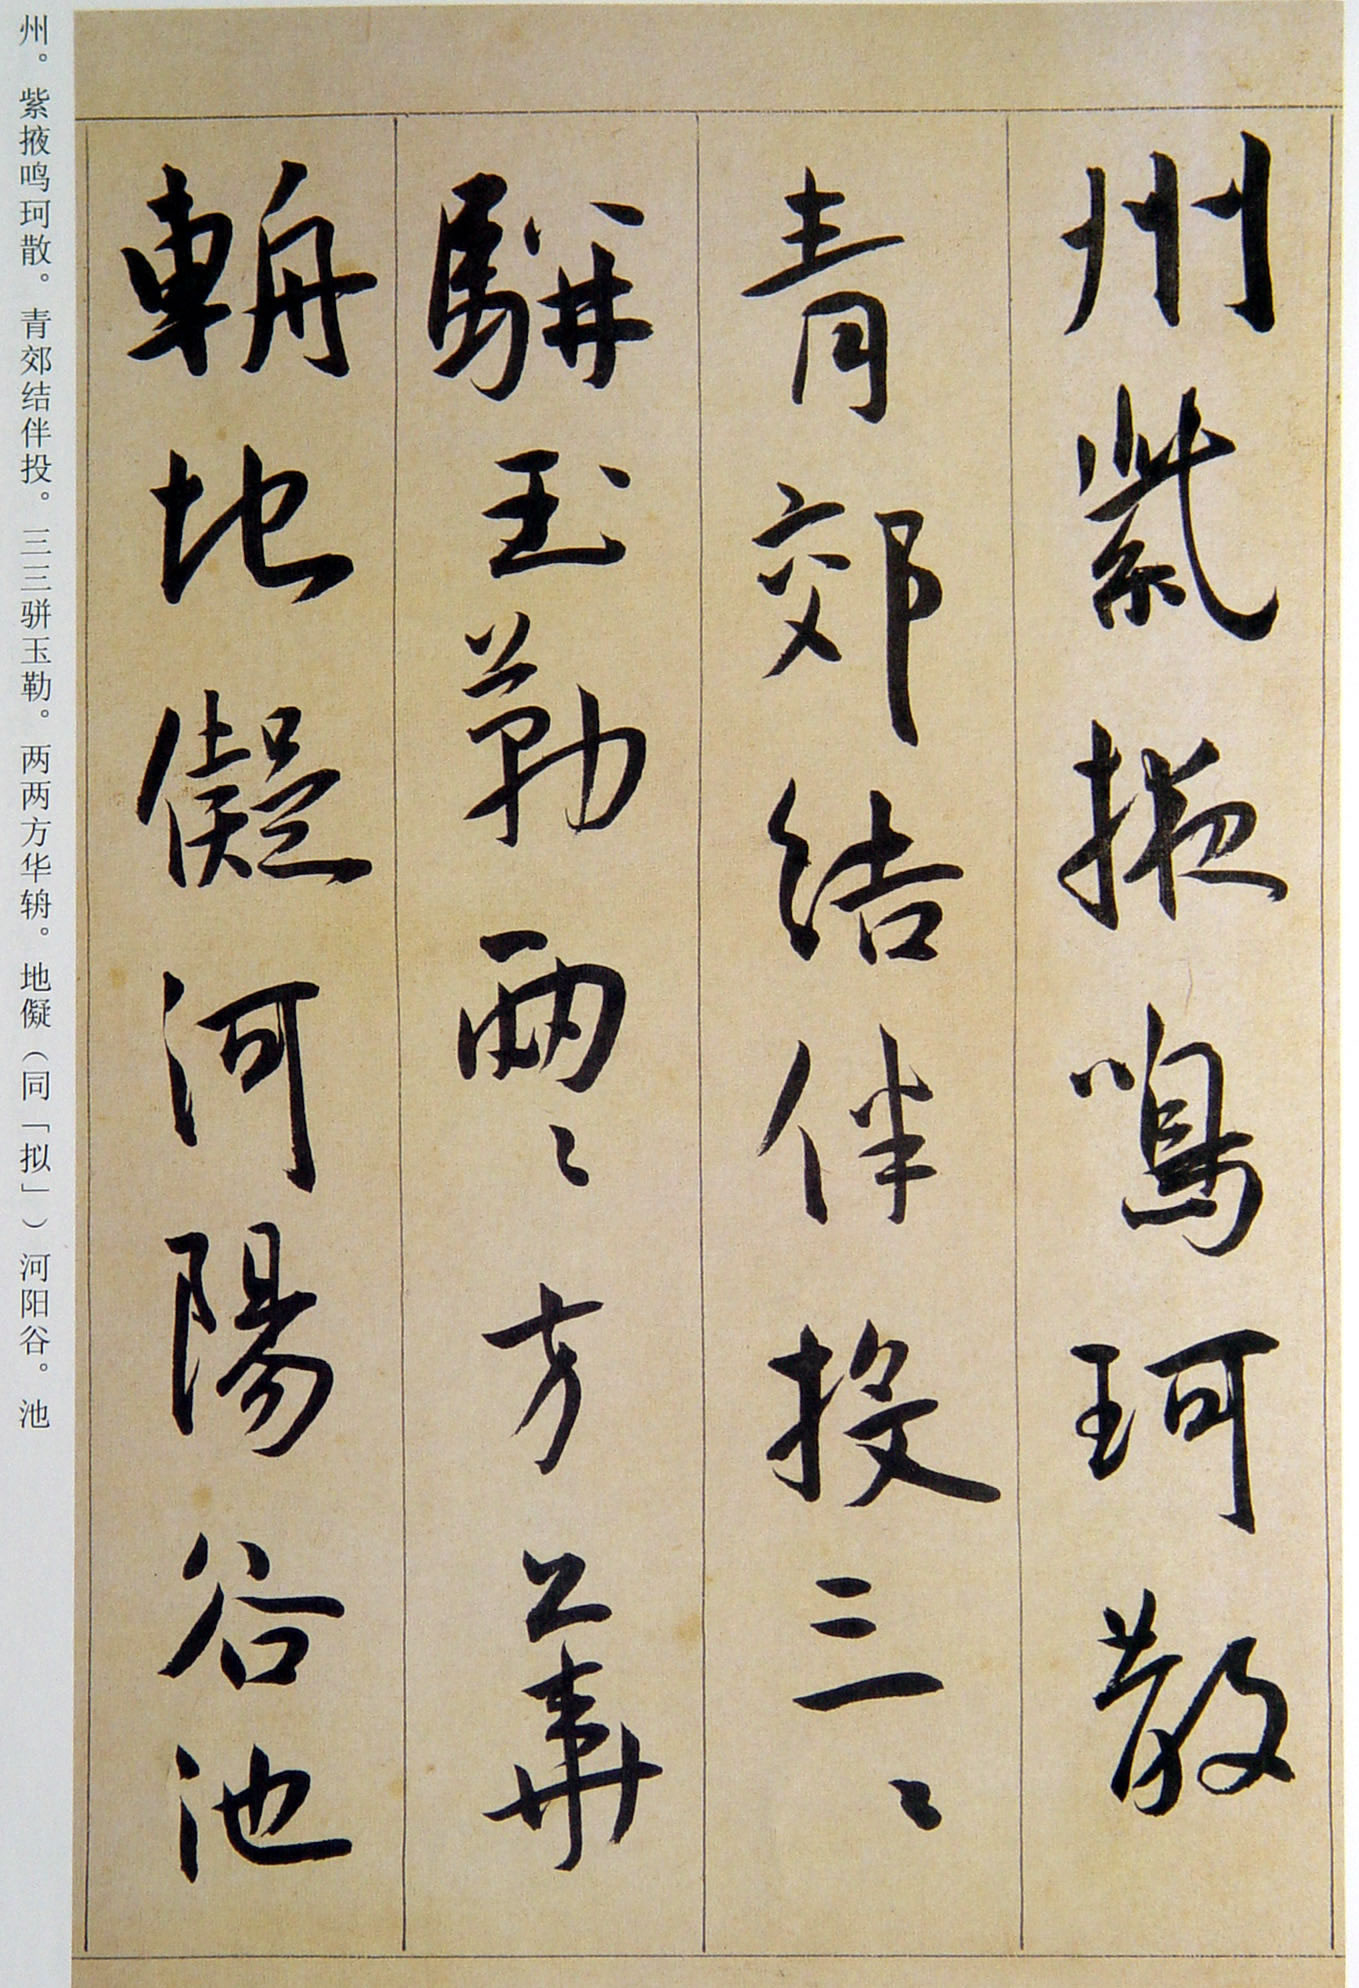 州紫掖鳴珂散
青郊结伴投三〻
駢玉勒兩〻方華
輈地儗河陽谷池
州。紫掖鸣珂散。青郊结伴投。三三骈玉勒。两两方华辀。地儗（同「拟」）河阳谷。池